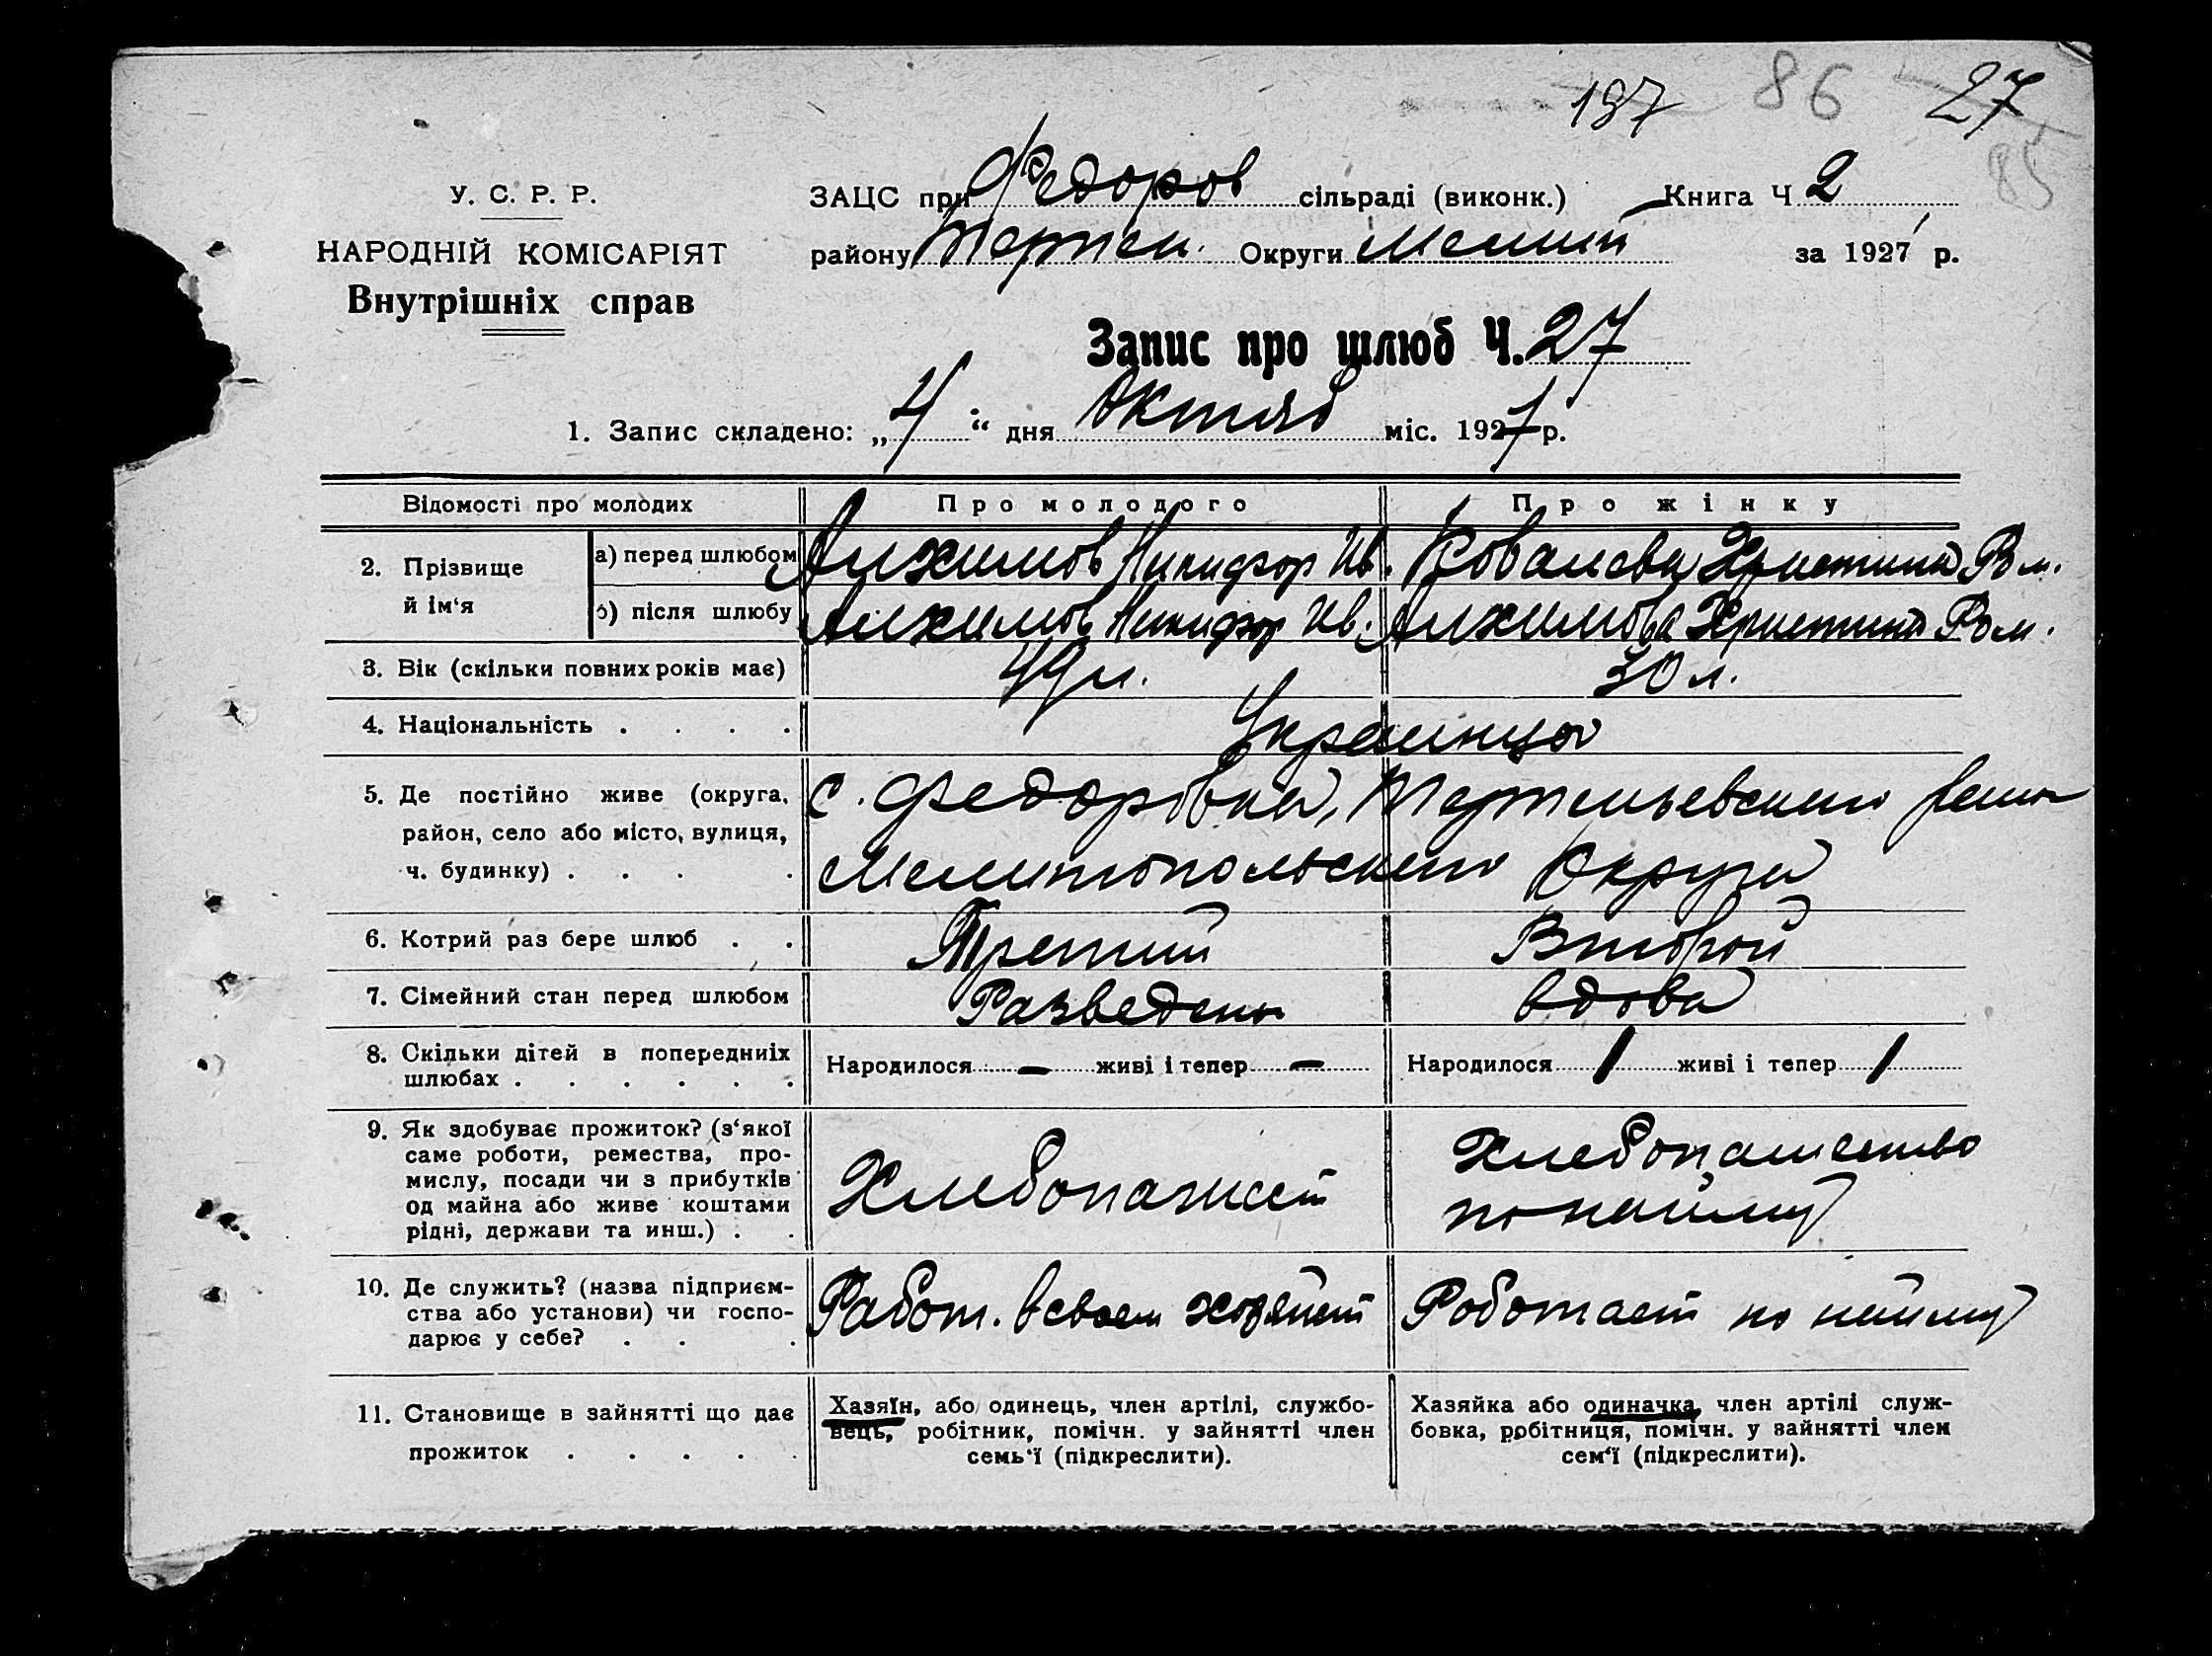 187 86 27
85
У. С. Р. Р.
НАРОДНІЙ КОМІСАРІЯТ
Внутрішніх справ
ЗАЦС при Федоров сільраді (виконк.) Книга Ч 2
району Терпен. Округи Мелит за 1927 р.
Запис про шлюб Ч. 27
1. Запис складено: „4“ дня Октяб міс. 1927 р.
Відомості про молодих Про молодого Про жінку
2. Прізвище й ім‘я
а) перед шлюбом Анхимов Никифор Ив. Ковалева Христина Ром.
б) після шлюбу Анхимов Никифор Ив. Анхимова Христина Ром.
3. Вік (скільки повних років має) 49 л. 30 л.
4. Національність . . . . Украинцы
5. Де постійно живе (округа, с. Федоровка, Терпеньевского
район, село або місто, вулиця,
ч. будинку) . . . . Мелитопольского Округа
6. Котрий раз бере шлюб . . Третий Второй
7. Сімейний стан перед шлюбом Разведен вдова
8. Скільки дітей в попередниіх Народилося — живі і тепер — Народилося 1 живі і тепер 1
шлюбах . . . . . .
9. Як здобуває прожиток? (з‘якої
саме роботи, ремества, про-
мислу, посади чи з прибутків
од майна або живе коштами
рідні, держави та инш.) . .
Хлебопашест
Хлебопашество
по найму
10. Де служить? (назва підприєм-
ства або установи) чи госпо-
дарює у себе? . . .
Работ. в своем хозяйст
Роботает по найму
11. Становище в зайнятті що дає
прожиток . . . . .
Хазяїн, або одинець, член артілі, службо-
вець, робітник, помічн. у зайнятті член
семь‘ї (підкреслити).
Хазяйка або одиначка, член артілі служ-
бовка, робітниця, помічн. у зайнятті член
сем‘ї (підкреслити).